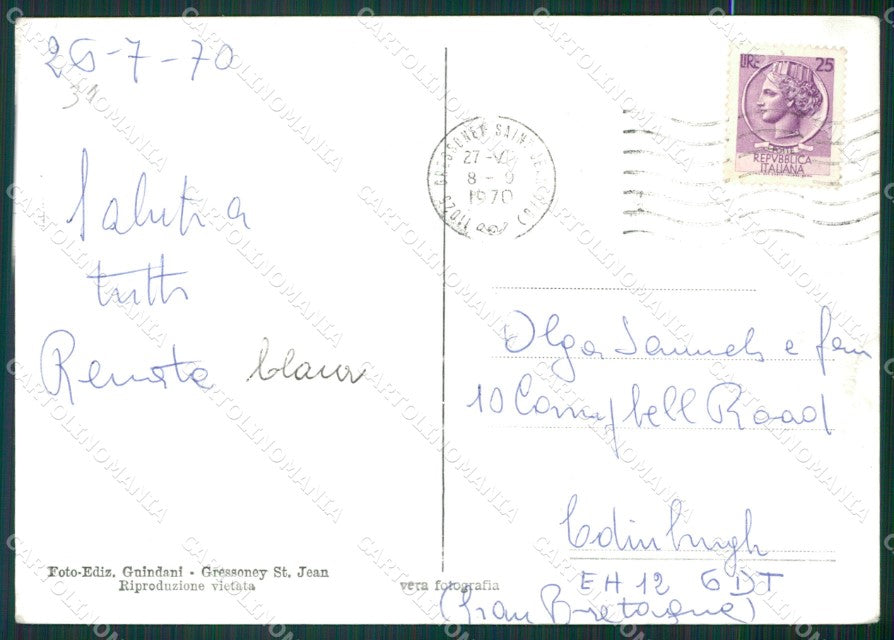 26-7-70
34
Saluti a
tutti
Renata Clara
Foto-Ediz. Guindani - Gressoney St. Jean
Riproduzione vietata
vera fotografia
GRESSONEY SAINT JEAN (AO)
27-VII
8-9
1970
11025
LIRE 25
POSTE
REPVBBLICA
ITALIANA
Olga e fam
10 Campbell Road
Edinburgh
EH12 6DT
(Gran Bretagna)
CARTOLINOMANIA